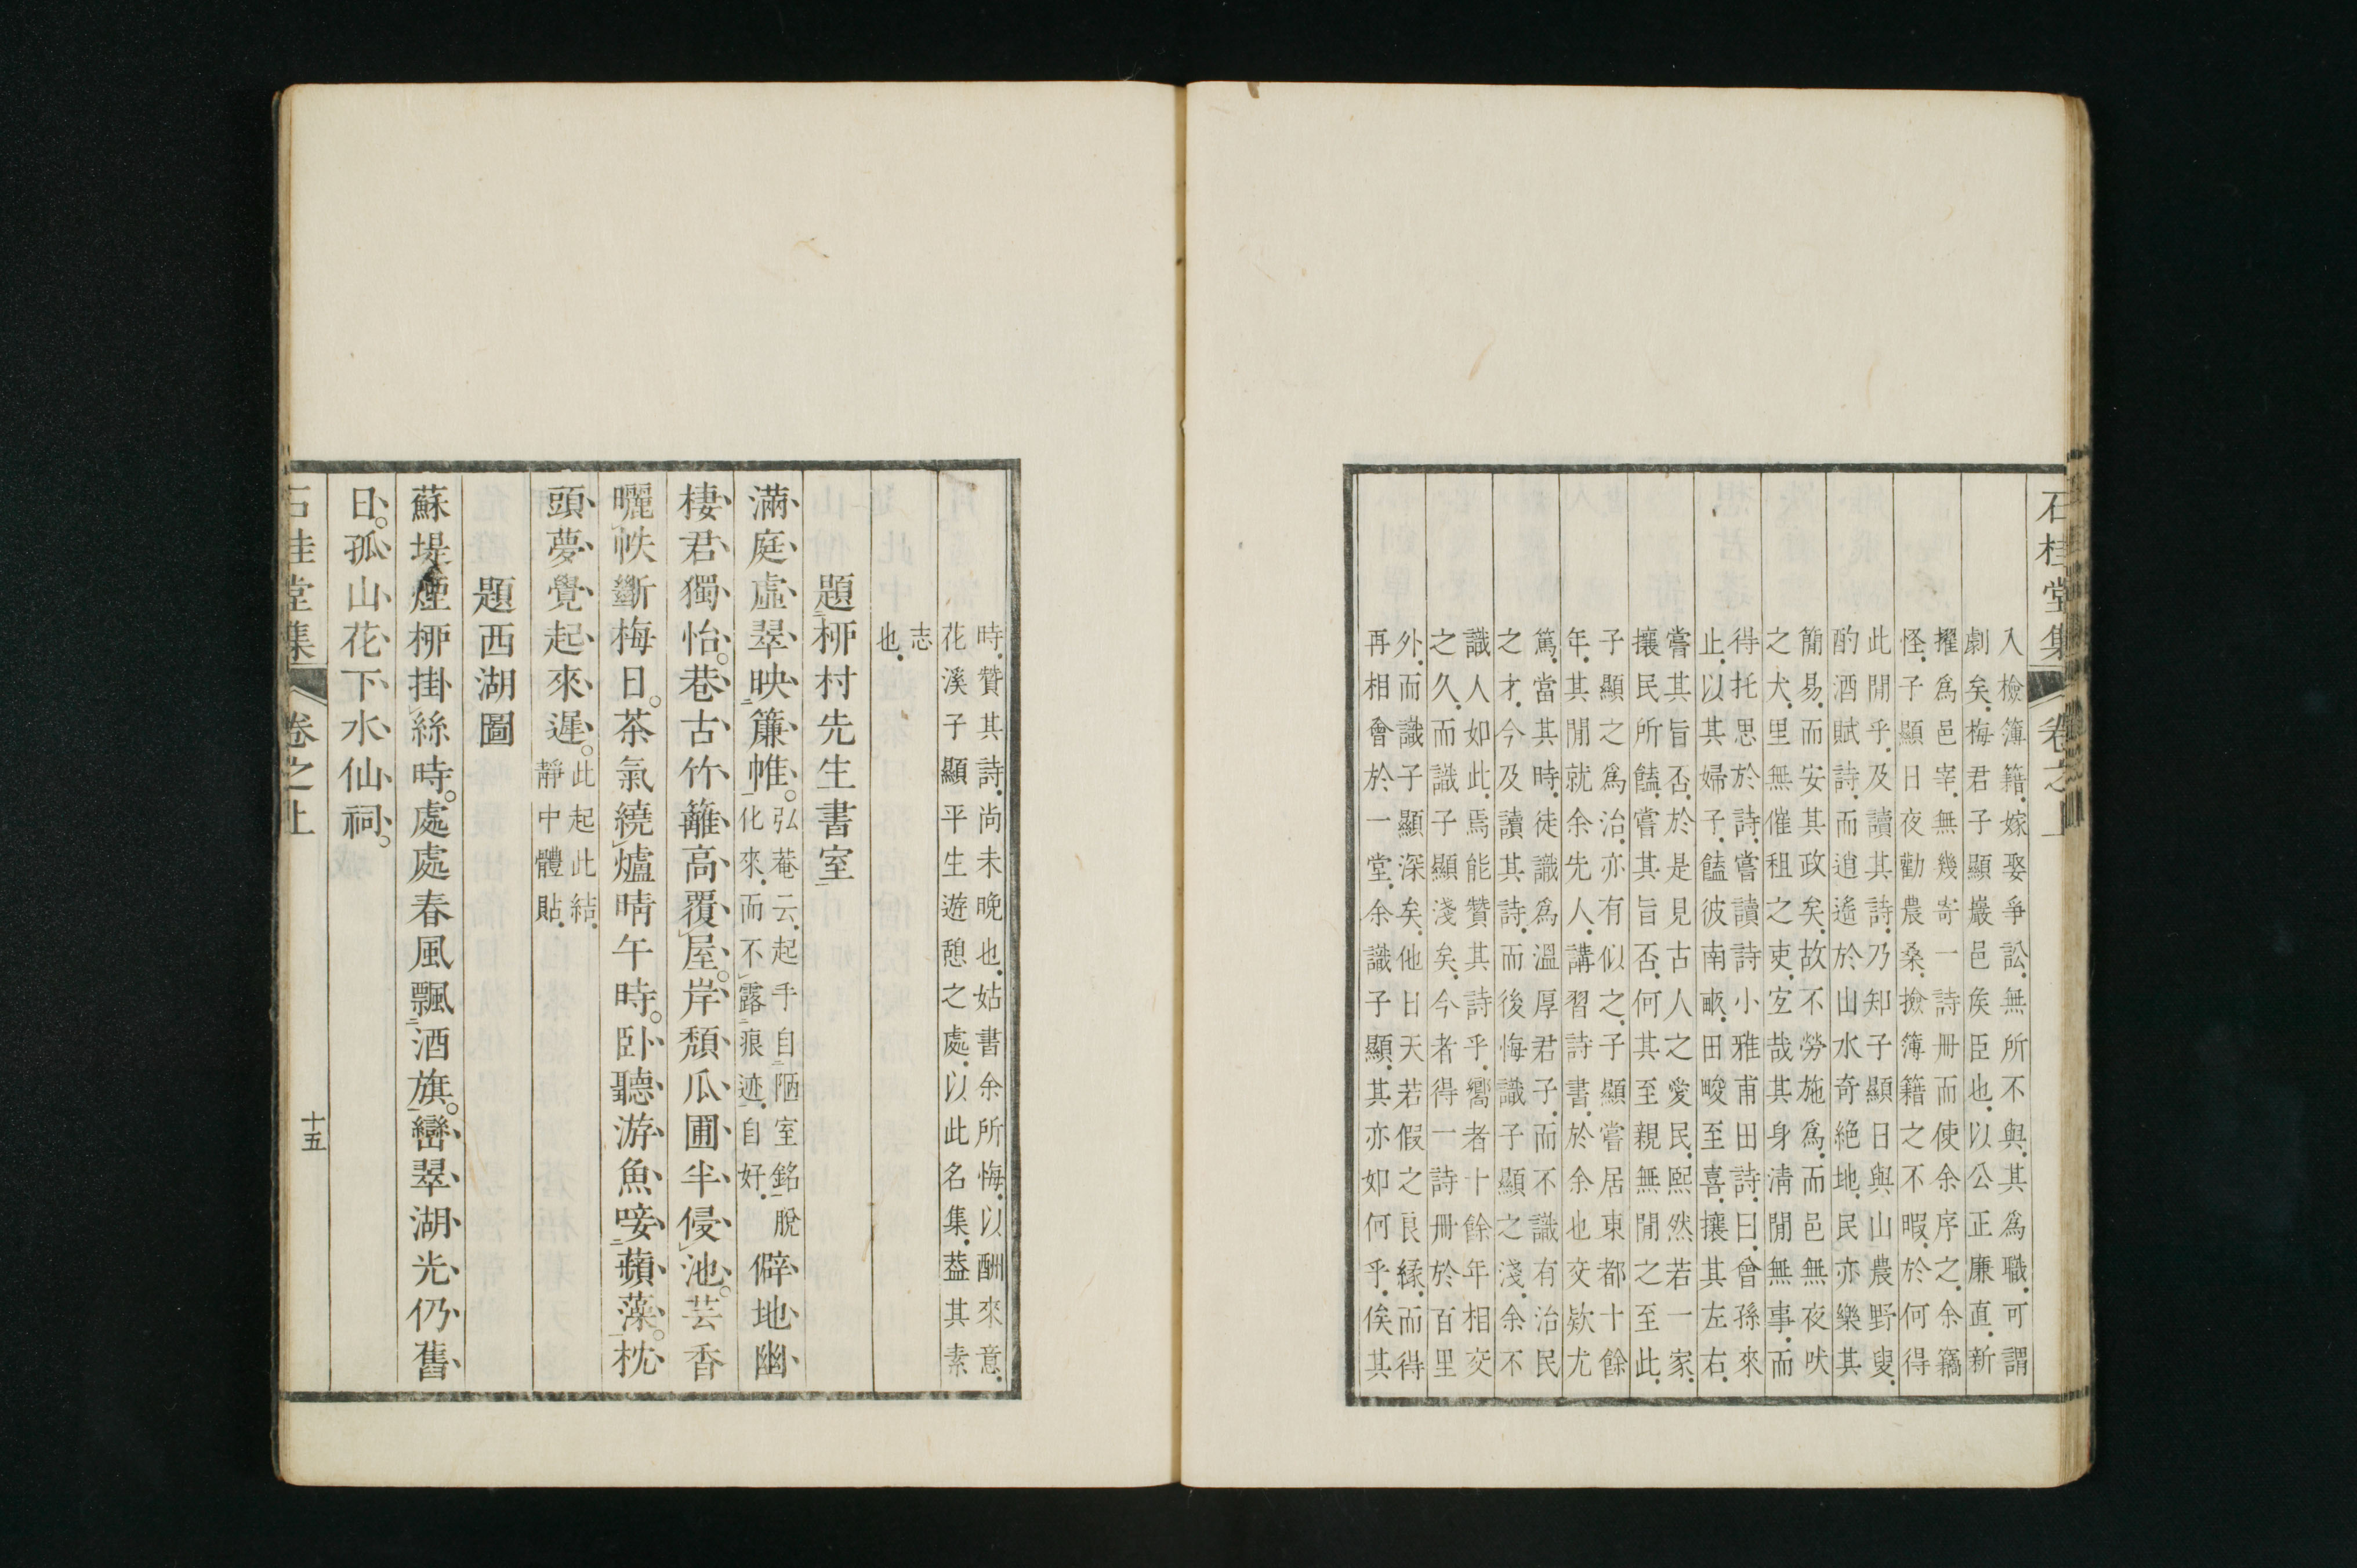 石桂堂集 卷之上
入檢簿籍.嫁娶爭訟.無所不與.其爲職.可謂
劇矣.梅君子顯巖邑矦臣也.以公正廉直.新
擢爲邑宰.無幾寄一詩冊而使余序之.余竊
怪.子顯日夜勸農桑.撿簿籍之不暇.於何得
此閒乎.及讀其詩.乃知子顯日與山農野叟.
酌酒賦詩.而逍遙於山水奇絶地.民亦樂其
簡易.而安其政矣.故不勞施爲.而邑無夜吠
之犬.里無催租之吏.宐哉其身淸閒無事.而
得托思於詩.嘗讀詩小雅甫田詩.曰.曾孫來
止.以其婦子.饁彼南畝.田畯至喜.攘其左右.
嘗其旨否.於是見古人之愛民.熙然若一家.
攘民所饁.嘗其旨否.何其至親無閒之至此.
子顯之爲治.亦有似之.子顯嘗居東都十餘
年.其閒就余先人.講習詩書.於余也交欵尤
篤.當其時.徒識爲溫厚君子.而不識有治民
之才.今及讀其詩.而後悔識子顯之淺.余不
識人如此.焉能贊其詩乎.嚮者十餘年相交
之久.而識子顯淺矣.今者得一詩冊於百里
外.而識子顯深矣.他日天若假之良緣.而得
再相會於一堂.余識子顯.其亦如何乎.俟其
時.贊其詩.尚未晚也.姑書余所悔.以酬來意.
花溪子顯平生遊憩之處.以此名集.葢其素
志
也.
題栁村先生書室
滿庭虛翠映簾帷。弘菴云.起手自陋室銘脫
化來.而不露痕迹.自好.
僻地幽
棲君獨怡。巷古竹籬高覆屋。岸頹瓜圃半侵池。芸香
曬帙斷梅日。茶氣繞爐晴午時。臥聽游魚唼蘋藻。枕
頭夢覺起來遲。此起此結.
靜中體貼.
題西湖圖
蘇堤煙栁掛絲時。處處春風飄酒旗。巒翠湖光仍舊
日。孤山花下水仙祠。
石桂堂集 卷之上
十五